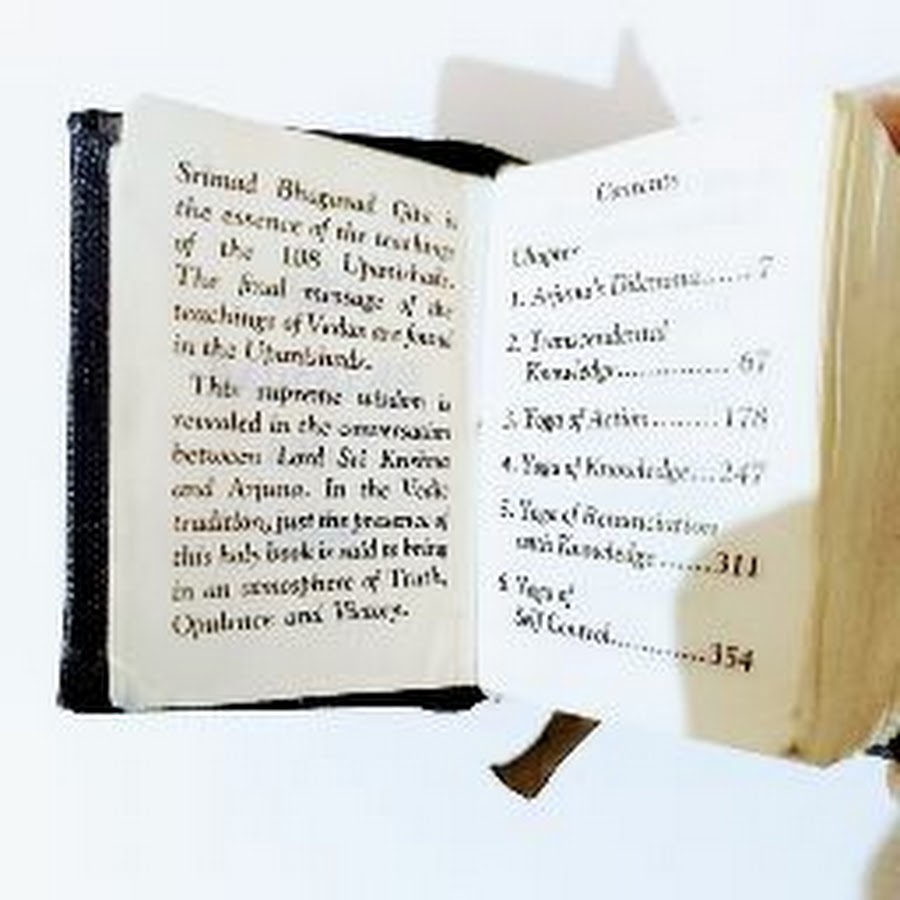 Srimad Bhagavad Gita is
the essence of the teachings
of the 108 Upanishads.
The final message of the
teachings of Vedas are found
in the Upanishads.
This supreme wisdom is
revealed in the conversation
between Lord Sri Krishna
and Arjuna. In the Vedic
tradition, just the presence of
this holy book is said to bring
in an atmosphere of Truth,
Opulence and Victory.
Contents
Chapter
1. Arjuna's Dilemma.......7
2. Transcendental
Knowledge..............67
3. Yoga of Action.........178
4. Yoga of Knowledge...247
5. Yoga of Renunciation
with Knowledge.......311
6 Yoga of
Self Control............354